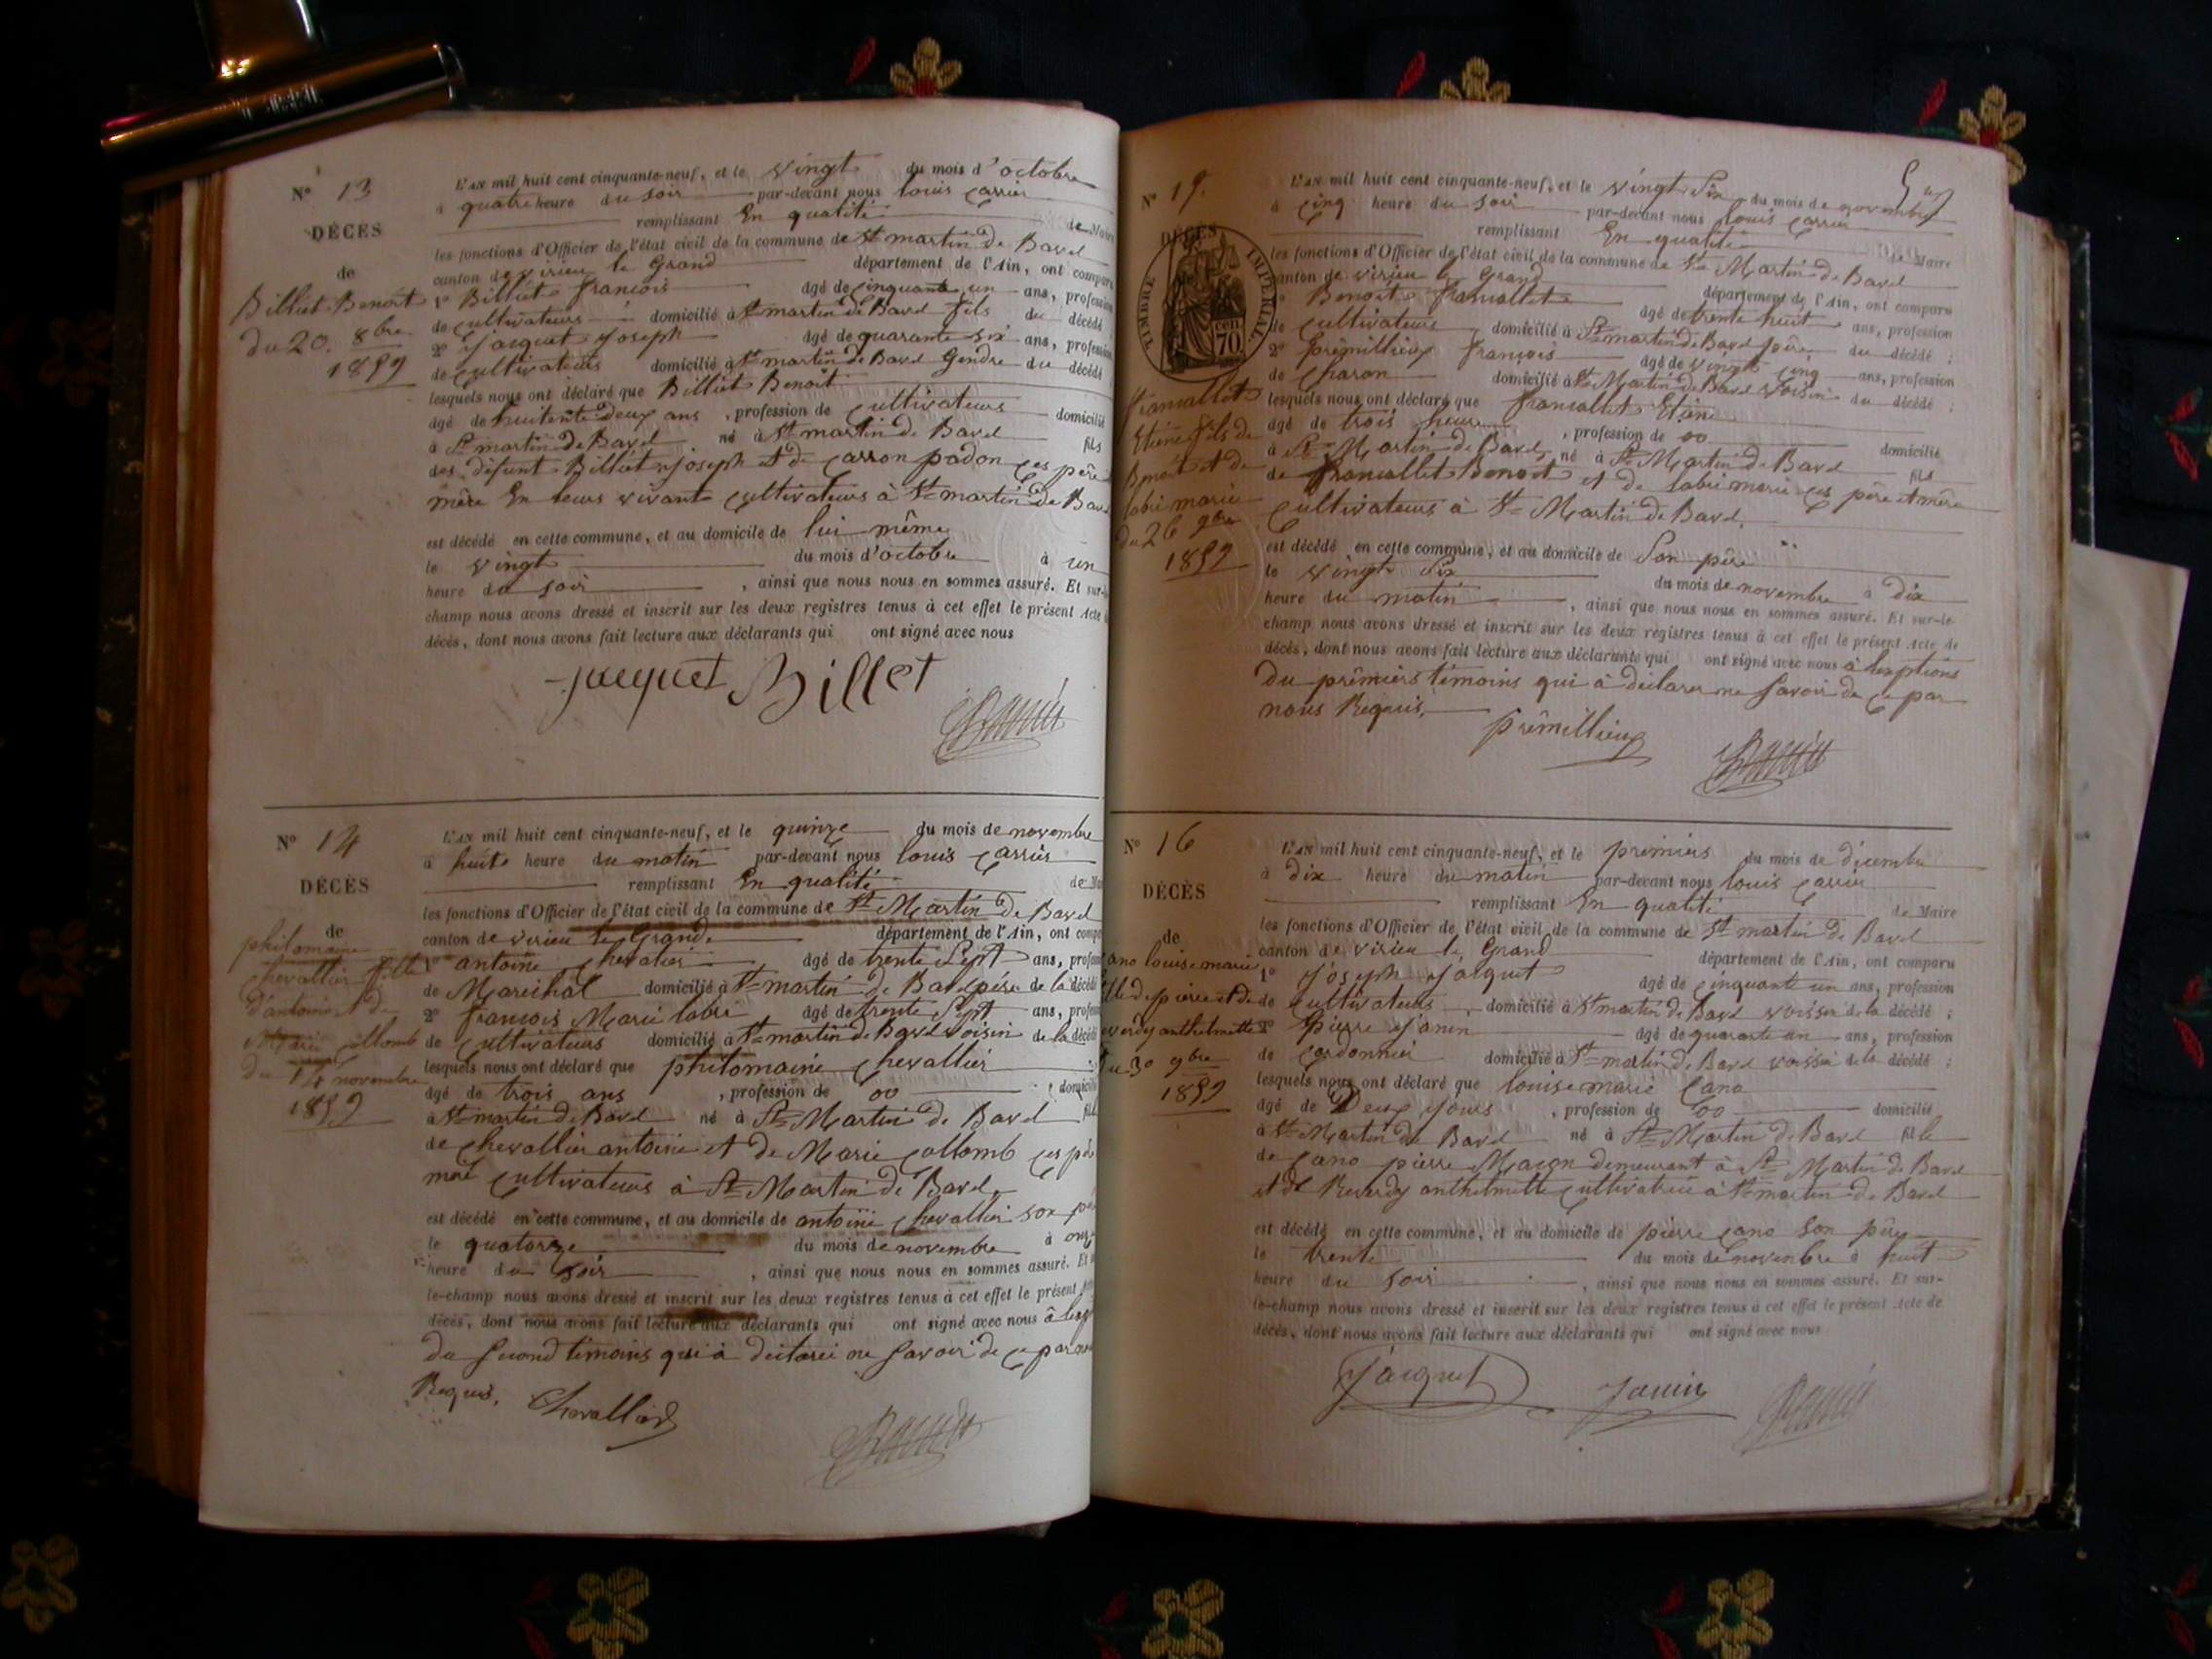 N° 13
DÉCÈS
de
Billiet Benoit
du 20. 8bre
1859
L'AN mil huit cent cinquante-neuf, et le vingt du mois d'octobre
à quatre heure du soir par-devant nous louis carrier
remplissant En qualité de Maire
les fonctions d'Officier de l'état civil de la commune de St martin de Bavel
canton de virieu le Grand département de l'Ain, ont comparu
1° Billiet francois âgé de cinquante un ans, profession
de cultivateurs domicilié à St martin de Bavel fils du décédé
2° Jacquet Joseph âgé de quarante six ans, profession
de cultivateurs domicilié à St martin de Bavel Gendre du décédé
lesquels nous ont déclaré que Billiet Benoit
âgé de huitente deux ans, profession de cultivateurs domicilié
à St martin de Bavel né à St martin de Bavel fils
des défunt Billiet joseph et de carron padon ces père
mère En leurs vivant cultivateurs à St martin de Bavel
est décédé en cette commune, et au domicile de lui même
le vingt du mois d'octobre à un
heure du soir, ainsi que nous nous en sommes assuré. Et sur-le-
champ nous avons dressé et inscrit sur les deux registres tenus à cet effet le présent Acte de
décès, dont nous avons fait lecture aux déclarants qui ont signé avec nous
jacquet Billet
N° 14
DÉCÈS
de
philomaine
chevallier fille
d'antoine et de
Marie collomb
du 14 novembre
1859
L'AN mil huit cent cinquante-neuf, et le quinze du mois de novembre
à huit heure du matin par-devant nous louis carrier
remplissant En qualité de Maire
les fonctions d'Officier de l'état civil de la commune de St Martin de Bavel
canton de virieu le Grand. département de l'Ain, ont comparu
1° antoine chevalier âgé de trente Sept ans, profession
de Maréchal domicilié à St martin de Bavel père de la décédé
2° francois Marie labri âgé de trente Sept ans, profession
de cultivateurs domicilié à St martin de Bavel voisin de la décédé
lesquels nous ont déclaré que philomaine chevallier
âgé de trois ans, profession de oo domicilié
à St martin de Bavel né à St Martin de Bavel fille
de chevallier antoine et de Marie collomb ces père
mere cultivateurs à St Martin de Bavel.
est décédé en cette commune, et au domicile de antoine chevallier son père
le quatorze du mois de novembre à onze
heure du soir, ainsi que nous nous en sommes assuré. Et sur-
le-champ nous avons dressé et inscrit sur les deux registres tenus à cet effet le présent Acte
décès, dont nous avons fait lecture aux déclarants qui ont signé avec nous à
du second témoins qui à déclarer ne savoir de ce par nous
Requis. Chevallier
5
N° 15.
DÉCÈS
TIMBRE IMPERIAL
70 cen
framallet
Etiene fils de
Benoit et de
labri marie
du 26 9bre
1859
L'AN mil huit cent cinquante-neuf, et le vingt Six du mois de novembre
à cinq heure du soir par-devant nous louis carrier
remplissant En qualité de Maire
les fonctions d'Officier de l'état civil de la commune de St Martin de Bavel
canton de virieu le Grand département de l'Ain, ont comparu
1° Benoit framallet âgé de trente huit ans, profession
de cultivateurs domicilié à St martin de Bavel père du décédé;
2° prémillieux françois âgé de vingt cinq ans, profession
de charon domicilié à St Martin de Bavel voisin du décédé;
lesquels nous ont déclaré que framallet Etiene
âgé de trois heure, profession de oo domicilié
à St Martin de Bavel, né à St Martin de Bavel fils
de framallet Benoit et de labri marie ces père et mère
cultivateurs à St Martin de Bavel.
est décédé en cette commune, et au domicile de Son père
le vingt Six du mois de novembre à dix
heure du matin, ainsi que nous nous en sommes assuré. Et sur-le-
champ nous avons dressé et inscrit sur les deux registres tenus à cet effet le présent Acte de
décès, dont nous avons fait lecture aux déclarants qui ont signé avec nous à lexptions
du prémiers témoins qui à déclarer ne savoir de ce par
nous Requis.
prémillieux
N° 16
DÉCÈS
de
cano louise marie
fille de pierre et de
reverdy anthelmette
du 30 9bre
1859
L'AN mil huit cent cinquante-neuf, et le premiers du mois de décembre
à dix heure du matin par-devant nous louis carrier
remplissant En qualité de Maire
les fonctions d'Officier de l'état civil de la commune de St martin de Bavel
canton de virieu le Grand département de l'Ain, ont comparu
1° joseph Jacquet âgé de cinquante un ans, profession
de cultivateurs, domicilié à St martin de Bavel voisin de la décédé;
2° pierre janin âgé de quarante un ans, profession
de cordonnier domicilié à St martin de Bavel voisin de la décédé;
lesquels nous ont déclaré que louise marie cano
âgé de Deux jours, profession de oo domicilié
à St Martin de Bavel né à St Martin de Bavel fille
de cano pierre Maçon demeurant à St Martin de Bavel
et de Reverdy anthelmette cultivatrice à St martin de Bavel
est décédé en cette commune, et au domicile de pierre cano son père
le trente du mois de novembre à huit
heure du soir, ainsi que nous nous en sommes assuré. Et sur-
le-champ nous avons dressé et inscrit sur les deux registres tenus à cet effet le présent Acte de
décès, dont nous avons fait lecture aux déclarants qui ont signé avec nous
Jacquet Janin